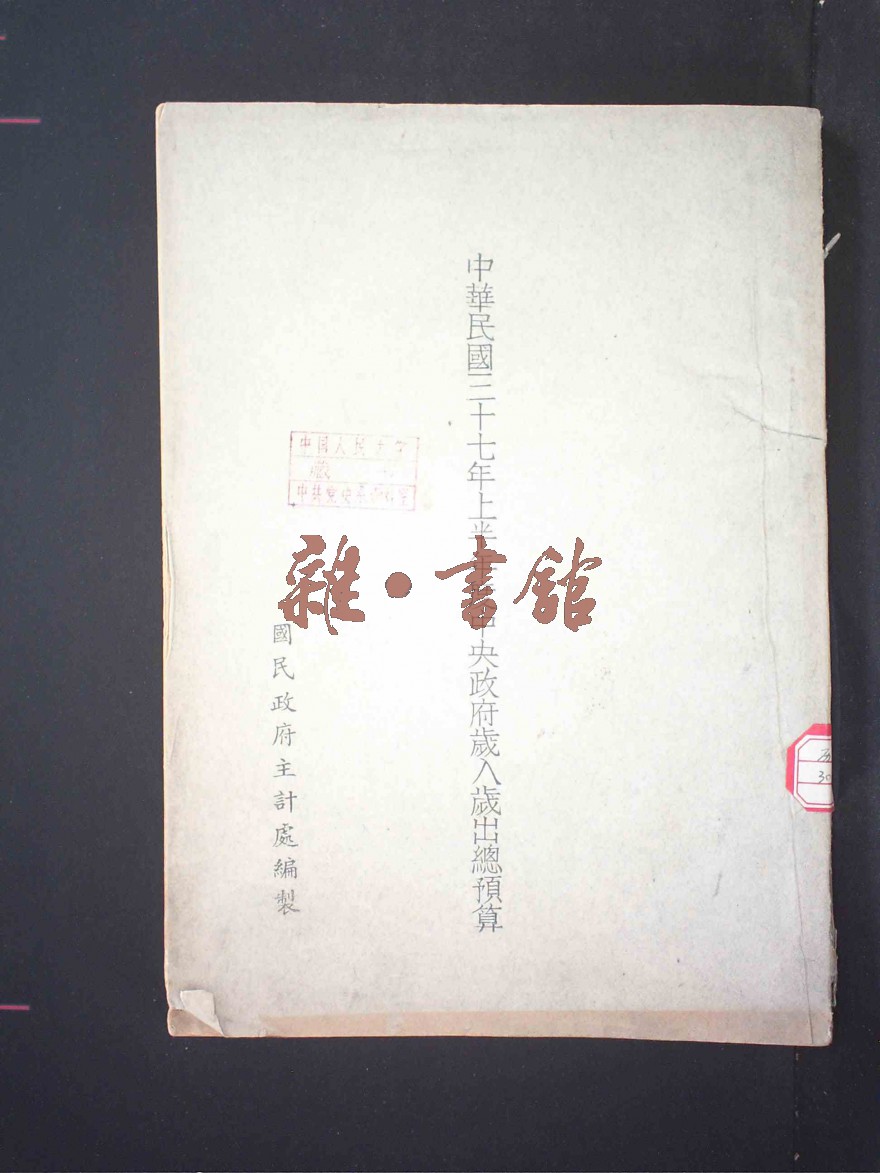 中華民國三十七年上半年度中央政府歲入歲出總預算
國民政府主計處編製
中国人民大学
藏
中共党史系资料室
雜・書館
30